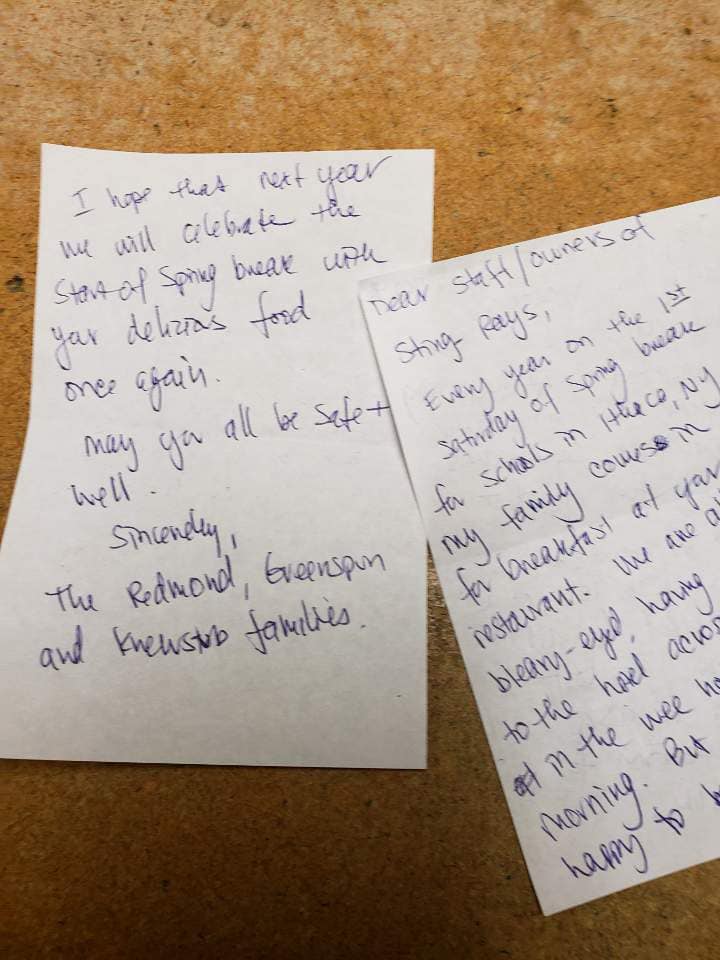 Dear staff/owners of
Sting Rays,
Every year on the 1st
Saturday of Spring break
for schools in Ithaca, NY
my family comes in
for breakfast at your
restaurant. We are
bleary-eyed, having
to the hotel
in the wee
morning. But
happy to
I hope that next year
we will celebrate the
start of Spring break with
your delicious food
once again.
May you all be safe +
well.
Sincerely,
The Redmond, Greenspun
and Knewstub families.